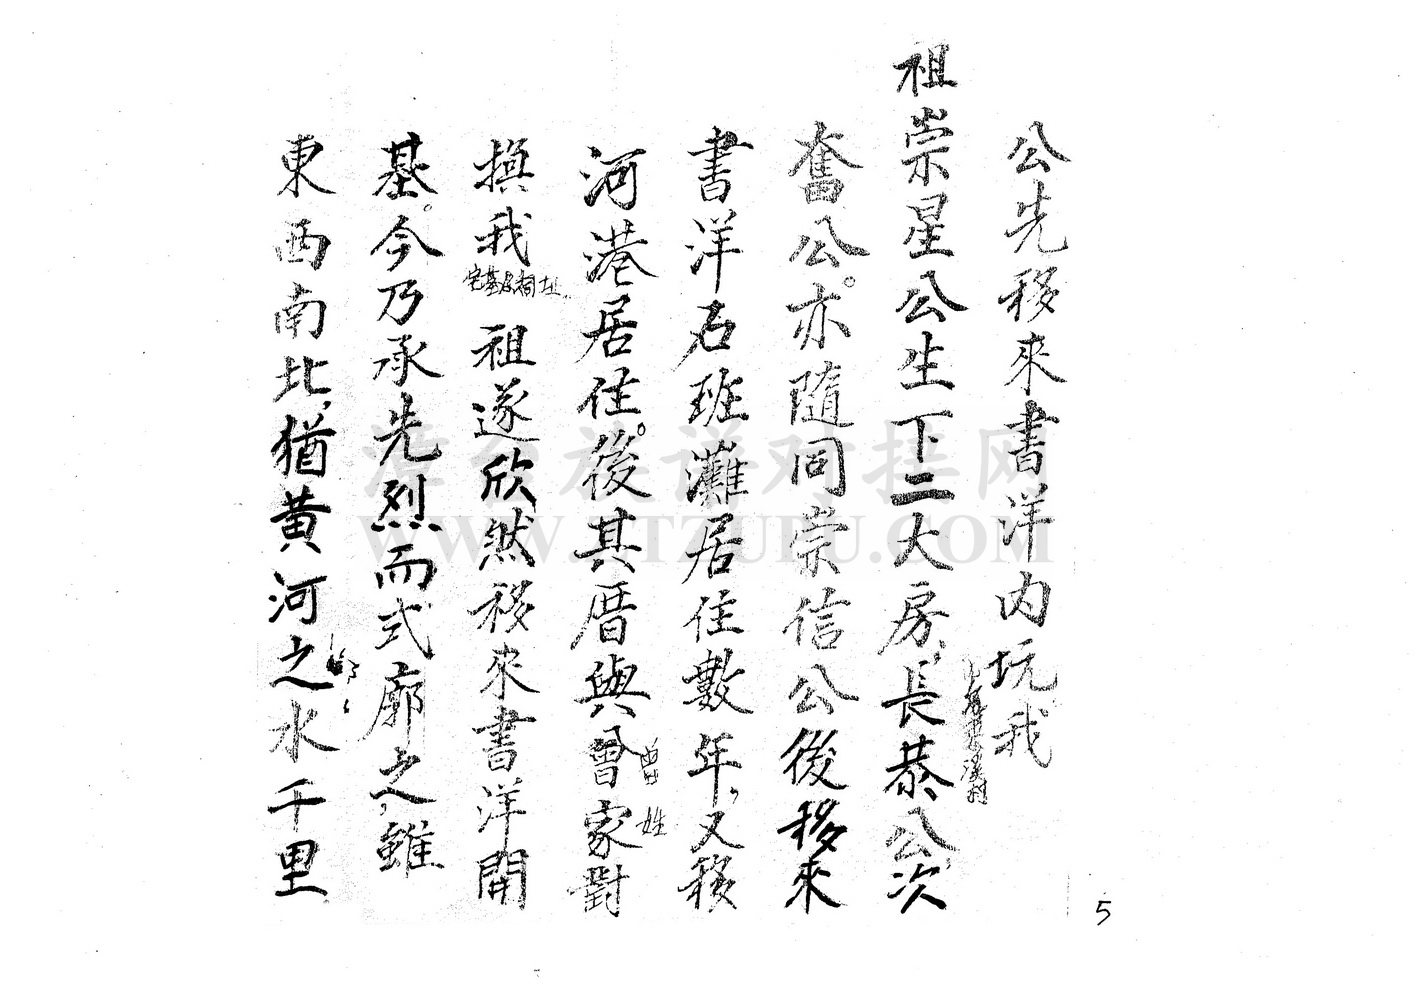 公先移來書洋內坑我
祖崇星公生下二大房長恭公次
奮公。亦隨同崇信公後移來
書洋石班灘居住數年,又移
河港居住。後其厝與曾家對
曾姓
換我
宅基居祠址
祖遂欣然移來書洋開
基。今乃承先烈而式廓之,雖
東西南北,猶黃河之水千里
5
港台族谱对接网
WWW.GTZUPU.COM